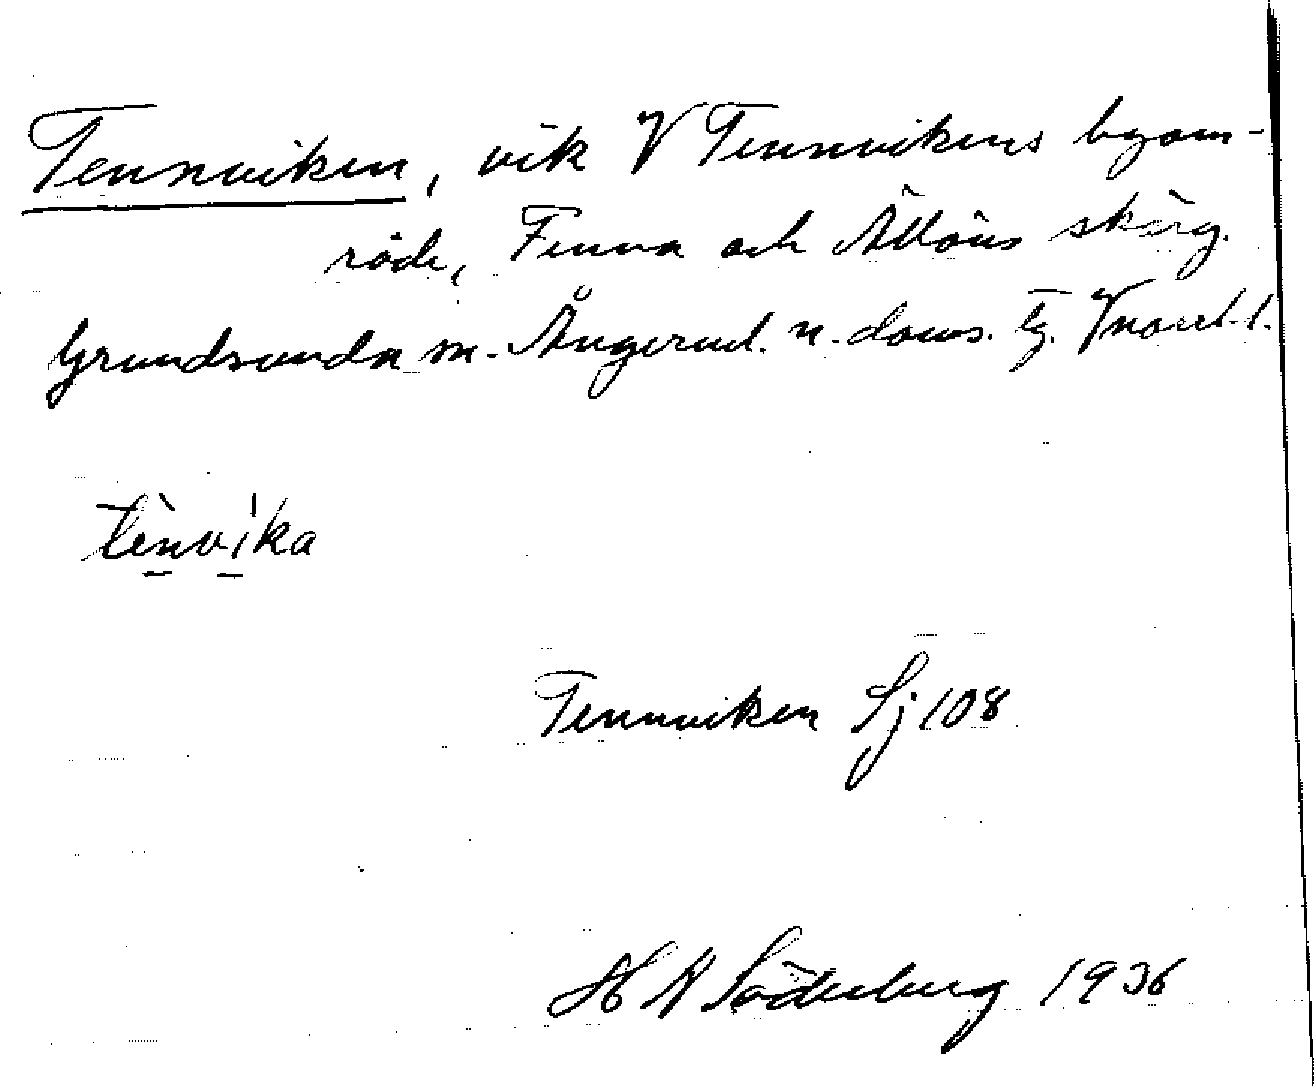 Tennviken, vik V Tennvikens byom-
råde, Finna och Ållöns skärg.
Grundsunda sn. Ångerml. n. doms. tg. Vnorrl. l.
tènvika
Tennviken Sj 108
H A Söderberg 1936